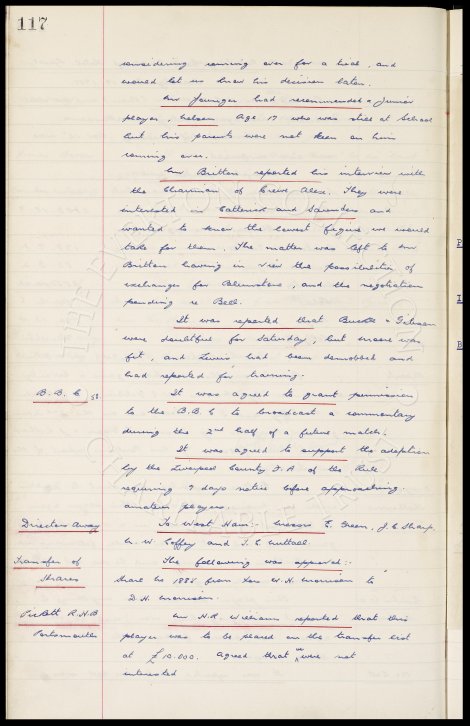 117
considering coming over for a trial, and
would let us know his decision later.
Mr Younger had recommended a Junior
player, Nelson. Age 17 who was still at School
but his parents were not keen on him
coming over.
Mr Britten reported his interview with
the Chairman of Crewe Alex. They were
interested in Catterick and Saunders and
wanted to know the lowest figure we would
take for them. The matter was left to Mr
Britten having in view the possibilities of
exchanges for Blunstone, and the negotiation
pending re Bell.
It was reported that Buckle & Gibson
were doubtful for Saturday, but Moore was
fit, and Lewis had been demobbed and
had reported for training.
B. B. C 58.
It was agreed to grant permission
to the B.B.C to broadcast a commentary
during the 2nd half of a future match.
It was agreed to support the adoption
by the Liverpool County F.A of the Rule
requiring 7 days notice before approaching
amateur players.
Directors Away
To West Ham: Messrs E. Green, J. C Sharp
C. W. Coffey and T. C Nuttall
Transfer of
Shares
The following was approved:-
Share No 1885 from Exs W. H. Morrison to
D. H. Morrison.
R.H.B
Portsmouth
Mr H.R. Williams reported that this
player was to be placed on the transfer list
at £10.000. Agreed that we were not
interested